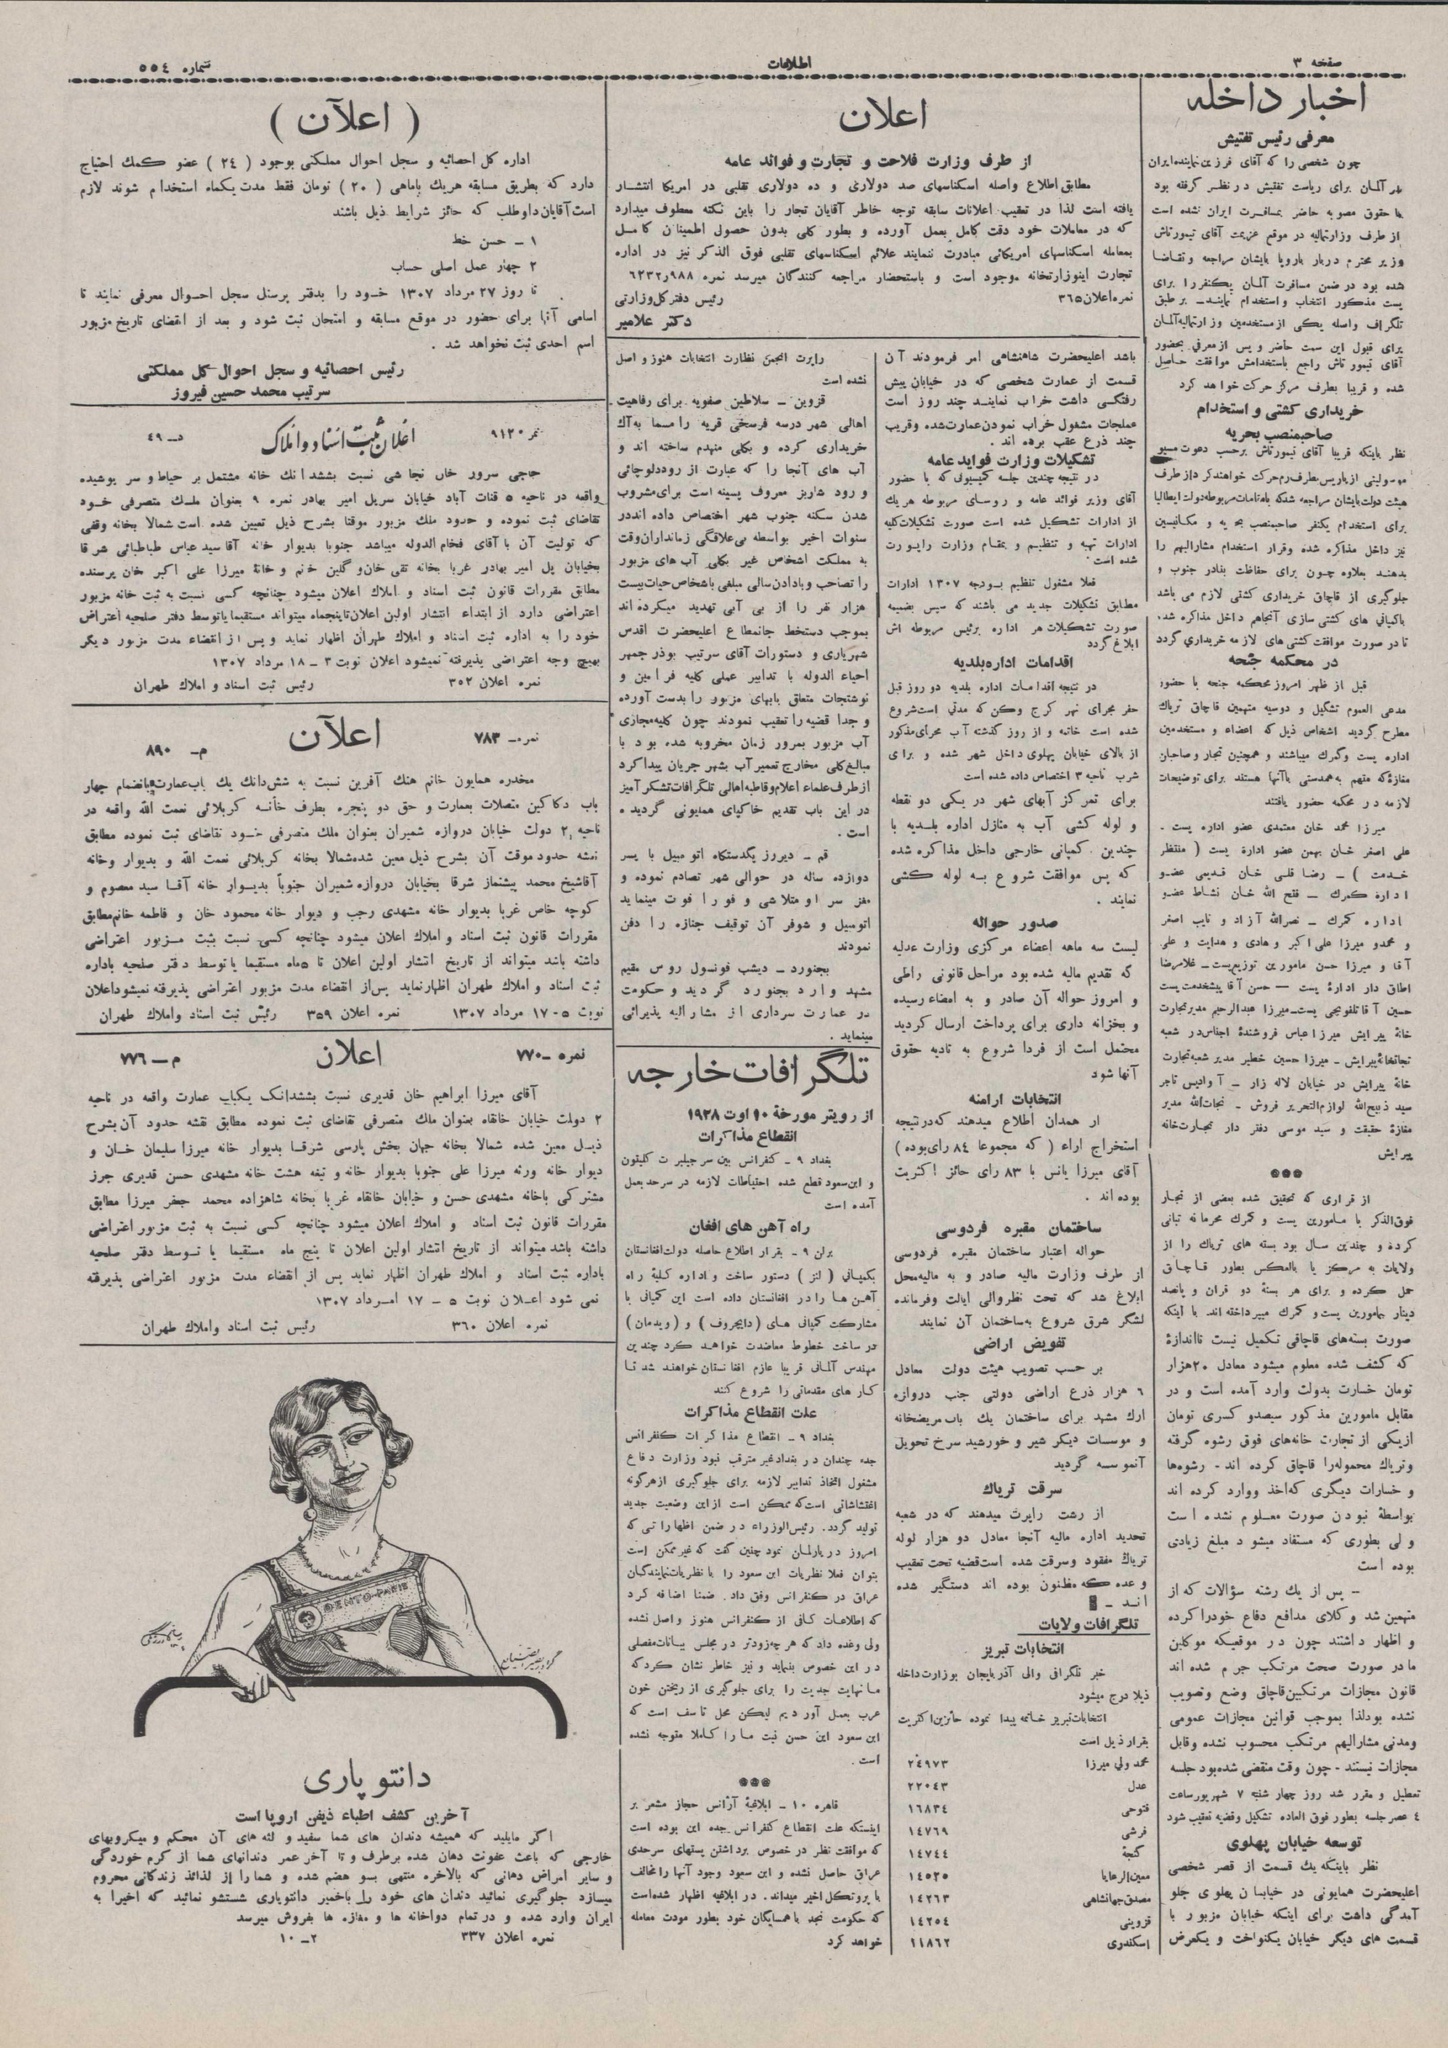 صفحه ۳
اطلاعات
شماره ٥٥٤
اخبار داخله
معرفی رئیس تفتیش
چون شخصی را که آقای فرزین نماینده ایران
در آلمان برای ریاست تفتیش در نظر گرفته بود
با حقوق مصوبه حاضر بمسافرت ایران نشده است
از طرف وزارتمالیه در موقع عزیمت آقای تیمورتاش
وزیر محترم دربار باروپا بایشان مراجعه و تقاضا
شده بود در ضمن مسافرت آلمان یکنفر را برای
پست مذکور انتخاب و استخدام نمایند ـ بر طبق
تلگراف واصله یکی از مستخدمین وزارتمالیه آلمان
برای قبول این سمت حاضر و پس از معرفی بحضور
آقای تیمورتاش راجع باستخدامش موافقت حاصل
شده و قریبا بطرف مرکز حرکت خواهد کرد
خریداری کشتی و استخدام
صاحبمنصب بحریه
نظر باینکه قریبا آقای تیمورتاش برحسب دعوت مسیو
موسولینی از پاریس بطرف رم حرکت خواهند کرد از طرف
هیئت دولت بایشان مراجعه شده که با مقامات مربوطه دولت ایطالیا
برای استخدام یکنفر صاحبمنصب بحریه و مکانیسین
نیز داخل مذاکره شده و قرار استخدام مشارالیهم را
بدهند بعلاوه چون برای حفاظت بنادر جنوب و
جلوگیری از قاچاق خریداری کشتی لازم می باشد
با کمپانی های کشتی سازی آنجاهم داخل مذاکره شد،
تا در صورت موافقت کشتی های لازمه خریداری گردد
در محکمه جنحه
قبل از ظهر امروز محکمه جنحه با حضور
مدعی العموم تشکیل و دوسیه متهمین قاچاق تریاک
مطرح گردید اشخاص ذیل که اعضاء و مستخدمین
اداره پست وگمرک میباشند و همچنین تجار و صاحبان
مغازه که متهم به همدستی با آنها هستند برای توضیحات
لازمه در محکمه حضور یافتند
میرزا محمد خان معتمدی عضو اداره پست ـ
علی اصغر خان بهمن عضو ادارهٔ پست ( منتظر
خدمت ) ـ رضا قلی خان قدیمی عضو
اداره گمرک ـ فتح الله خان نشاط عضو
اداره گمرک ـ نصرالله آزاد و نایب اصغر
و محمد و میرزا علی اکبر و هادی و هدایت و علی
آقا و میرزا حسن مامورین توزیع پست ـ غلامرضا
اطاق دار ادارهٔ پست ـ حسن آقا پیشخدمت پست
حسین آقا تلفونچی پست ـ میرزا عبدالرحیم مدیر تجارت
خانهٔ پیرایش میرزا عباس فروشندهٔ اجناس در شعبه
تجارتخانهٔ پیرایش ـ میرزا حسین خطیر مدیر شعبه تجارت
خانهٔ پیرایش در خیابان لاله زار ـ آوادیس تاجر
سید ذبیح‌الله لوازم‌التحریر فروش ـ نجات‌الله مدیر
مغازهٔ حقیقت و سید موسی دفتر دار تجارت خانه
پیرایش
***
از قراری که تحقیق شده بعضی از تجار
فوق‌الذکر با مامورین پست و گمرک محرمانه تبانی
کرده و چندین سال بود بسته های تریاک را از
ولایات به مرکز یا بالعکس بطور قاچاق
حمل کرده و برای هر بستهٔ دو قران و پانصد
دینار بمامورین پست و گمرک میپرداخته اند با اینکه
صورت بسته‌های قاچاقی تکمیل نیست تا اندازهٔ
که کشف شده معلوم میشود معادل ۲۰ هزار
تومان خسارت بدولت وارد آمده است و در
مقابل مامورین مذکور سیصد و کسری تومان
از یکی از تجارت خانه‌های فوق رشوه گرفته
و تریاک محموله را قاچاق کرده اند ـ رشوه‌ها
و خسارات دیگری که اخذ و وارد کرده اند
بواسطهٔ نبودن صورت معلوم نشده است
ولی بطوری که مستفاد میشود مبلغ زیادی
بوده است
ـ پس از یک رشته سؤالات که از
متهمین شد و وکلای مدافع دفاع خود را کرده
و اظهار داشتند چون در موقعیکه موکلین
ما در صورت صحت مرتکب جرم شده اند
قانون مجازات مرتکبین قاچاق وضع و تصویب
نشده بود لذا بموجب قوانین مجازات عمومی
و مدنی مشارالیهم مرتکب محسوب نشده و قابل
مجازات نیستند ـ چون وقت منقضی شده بود جلسه
تعطیل و مقرر شد روز چهار شنبه ۷ شهریور ساعت
٤ عصر جلسه بطور فوق العاده تشکیل و قضیه تعقیب شود
توسعه خیابان پهلوی
نظر باینکه یک قسمت از قصر شخصی
اعلیحضرت همایونی در خیابان پهلوی جلو
آمدگی داشت برای اینکه خیابان مزبور با
قسمت های دیگر خیابان یکنواخت و یکعرض
اعلان
از طرف وزارت فلاحت و تجارت و فوائد عامه
مطابق اطلاع واصله اسکناسهای صد دولاری و ده دولاری تقلبی در امریکا انتشار
یافته است لذا در تعقیب اعلانات سابقه توجه خاطر آقایان تجار را باین نکته معطوف میدارد
که در معاملات خود دقت کامل بعمل آورده و بطور کلی بدون حصول اطمینان کامل
بمعامله اسکناسهای امریکائی مبادرت ننمایند علائم اسکناسهای تقلبی فوق الذکر نیز در اداره
تجارت اینوزارتخانه موجود است و باستحضار مراجعه کنندگان میرسد نمره ۶۲۳۲٫۹۸۸
نمره اعلان ۳۶٥ رئیس دفتر کل وزارتی
دکتر علامیر
باشد اعلیحضرت شاهنشاهی امر فرمودند آن
قسمت از عمارت شخصی که در خیابان پیش
رفتگی داشت خراب نمایند چند روز است
عملجات مشغول خراب نمودن عمارت شده و قریب
چند ذرع عقب برده اند ـ
تشکیلات وزارت فواید عامه
در نتیجه چندین جلسه کمیسیونی که با حضور
آقای وزیر فوائد عامه و روسای مربوطه هر یک
از ادارات تشکیل شده است صورت تشکیلات کلیه
ادارات تهیه و تنظیم و بمقام وزارت راپورت
شده است
فعلا مشغول تنظیم بودجه ۱۳۰۷ ادارات
مطابق تشکیلات جدید می باشند که سپس بضمیمه
صورت تشکیلات هر اداره برئیس مربوطه اش
ابلاغ گردد
اقدامات اداره بلدیه
در نتیجه اقدامات اداره بلدیه دو روز قبل
حفر مجرای نهر کرج و کن که مدتی است شروع
شده است خاتمه و از روز گذشته آب مجرای مذکور
از بالای خیابان پهلوی داخل شهر شده و برای
شرب ناحیه ۳ اختصاص داده شده است
برای تمرکز آبهای شهر در یکی دو نقطه
و لوله کشی آب به منازل اداره بلدیه با
چندین کمپانی خارجی داخل مذاکره شده
که پس موافقت شروع به لوله کشی
نمایند .
صدور حواله
لیست سه ماهه اعضاء مرکزی وزارت عدلیه
که تقدیم مالیه شده بود مراحل قانونی را طی
و امروز حواله آن صادر و به امضاء رسیده
و بخزانه داری برای پرداخت ارسال گردید
محتمل است از فردا شروع به تادیه حقوق
آنها شود
انتخابات ارامنه
از همدان اطلاع میدهند که در نتیجه
استخراج اراء ( که مجموعا ۸٤ رای بوده )
آقای میرزا یانس با ۸۳ رای حائز اکثریت
بوده اند .
ساختمان مقبره فردوسی
حواله اعتبار ساختمان مقبره فردوسی
از طرف وزارت مالیه صادر و به مالیه محل
ابلاغ شد که تحت نظر والی ایالت و فرمانده
لشگر شرق شروع به ساختمان آن نمایند
تفویض اراضی
بر حسب تصویب هیئت دولت معادل
٦ هزار ذرع اراضی دولتی جنب دروازه
ارک مشهد برای ساختمان یک باب مریضخانه
و موسسات دیگر شیر و خورشید سرخ تحویل
آنموسسه گردید
سرقت تریاک
از رشت راپرت میدهند که در شعبه
تحدید اداره مالیه آنجا معادل دو هزار لوله
تریاک مفقود و سرقت شده است قضیه تحت تعقیب
و عده که مظنون بوده اند دستگیر شده
اند ـ
تلگرافات ولایات
انتخابات تبریز
خبر تلگرافی والی آذربایجان بوزارت داخله
ذیلا درج میشود
انتخابات تبریز خاتمه پیدا نموده حائزین اکثریت
بقرار ذیل است
محمد ولی میرزا ۲٤۹۷۳
عدل ۲۲۰٤۳
فتوحی ۱٦۸۳٤
فرشی ۱٤۷٦۹
گنجهٔ ۱٤۷٤٤
معین‌الرعایا ۱٤٥۳٥
مصدق جهانشاهی ۱٤۲٦۳
قزوینی ۱٤۲٥٤
اسکندری ۱۱۸٦۲
راپرت انجمن نظارت انتخابات هنوز واصل
نشده است
قزوین ـ سلاطین صفویه برای رفاهیت
اهالی شهر در سه فرسخی قریه را مسما به آک
خریداری کرده و بکلی منهدم ساخته اند و
آب های آنجا را که عبارت از رود دلوچائی
و رود شاریز معروف پسینه است برای مشروب
شدن سکنه جنوب شهر اختصاص داده اند در
سنوات اخیر بواسطه بی علاقگی زمامداران وقت
به مملکت اشخاص غیر بکلی آب های مزبور
را تصاحب و با دادن سالی مبلغی باشخاص حیات بیست
هزار نفر را از بی آبی تهدید میکرده اند
بموجب دستخط جهانمطاع اعلیحضرت اقدس
شهریاری و دستورات آقای سرتیپ بوذرجمهر
احیاء الدوله با تدابیر عملی کلیه فرامین و
نوشتجات متعلق بابهای مزبور را بدست آورده
و جدا قضیه را تعقیب نمودند چون کلیه مجاری
آب مزبور بمرور زمان مخروبه شده بود با
مبالغ کلی مخارج تعمیر آب بشهر جریان پیدا کرد
از طرف علماء اعلام و قاطبه اهالی تلگرافات تشکر آمیز
در این باب تقدیم خاکپای همایونی گردیده
است .
قم ـ دیروز یک‌دستگاه اتومبیل با پسر
دوازده ساله در حوالی شهر تصادم نموده و
مغز سر او متلاشی و فورا فوت مینماید
اتومبیل و شوفر آن توقیف جنازه را دفن
نمودند
بجنورد ـ دیشب قونسول روس مقیم
مشهد وارد بجنورد گردید و حکومت
در عمارت سرداری از مشارالیه پذیرائی
مینماید .
تلگرافات خارجه
از رویتر مورخهٔ ۱۰ اوت ۱۹۲۸
انقطاع مذاکرات
بغداد ۹ ـ کنفرانس بین سر جیلبرت کلیتون
و ابن سعود قطع شده احتیاطات لازمه در سرحد بعمل
آمده است
راه آهن های افغان
برلن ۹ ـ بقرار اطلاع حاصله دولت افغانستان
بکمپانی ( لنز ) دستور ساخت و اداره کلیهٔ راه
آهن ها را در افغانستان داده است این کمپانی با
مشارکت کمپانی های ( دایجروف ) و ( ویدمان )
در ساخت خطوط معاضدت خواهند کرد چندین
مهندس آلمانی قریبا عازم افغانستان خواهند شد تا
کار های مقدماتی را شروع کنند
علت انقطاع مذاکرات
بغداد ۹ ـ انقطاع مذاکرات کنفرانس
جده چندان در بغداد غیر مترقب نبود وزارت دفاع
مشغول اتخاذ تدابیر لازمه برای جلوگیری از هر گونه
اغتشاشاتی است که ممکن است از این وضعیت جدید
تولید گردد . رئیس‌الوزراء در ضمن اظهاراتی که
امروز در پارلمان نمود چنین گفت که غیر ممکن است
بتوان فعلا نظریات ابن سعود را با نظریات نمایندگان
عراق در کنفرانس وفق داد . ضمنا اضافه کرد
که اطلاعات کافی از کنفرانس هنوز واصل نشده
ولی وعده داد که هر چه زودتر در مجلس بیانات مفصلی
در این خصوص بنماید و نیز خاطر نشان کرد که
ما نهایت جدیت را برای جلوگیری از ریختن خون
عرب بعمل آوردیم لیکن محل تاسف است که
ابن سعود این حسن نیت ما را کاملا متوجه نشده
است .
***
قاهره ۱۰ ـ ابلاغیهٔ آژانس حجاز مشعر بر
اینستکه علت انقطاع کنفرانس جده این بوده است
که موافقت نظر در خصوص برداشتن پستهای سرحدی
عراق حاصل نشده و ابن سعود وجود آنها را مخالف
با پروتکل اخیر میداند . در ابلاغیه اظهار شده است
که حکومت نجد با همسایگان خود بطور مودت معامله
خواهد کرد
( اعلآن )
اداره کل احصائیه و سجل احوال مملکتی بوجود ( ۲٤ ) عضو کمک احتیاج
دارد که بطریق مسابقه هریک با ماهی ( ۲۰ ) تومان فقط مدت یکماه استخدام شوند لازم
است آقایان داوطلب که حائز شرایط ذیل باشند
۱ ـ حسن خط
۲ چهار عمل اصلی حساب
تا روز ۲۷ مرداد ۱۳۰۷ خود را بدفتر پرسنل سجل احوال معرفی نمایند تا
اسامی آنها برای حضور در موقع مسابقه و امتحان ثبت شود و بعد از انقضای تاریخ مزبور
اسم احدی ثبت نخواهد شد .
رئیس احصائیه و سجل احوال کل مملکتی
سرتیپ محمد حسین فیروز
نمره ۹۱۲۰ اعلان ثبت اسناد و املاک د ـ ٤۹
حاجی سرور خان نجاشی نسبت بششدانک خانه مشتمل بر حیاط و سر پوشیده
واقعه در ناحیه ٥ قنات آباد خیابان سرپل امیر بهادر نمره ۹ بعنوان ملک متصرفی خود
تقاضای ثبت نموده و حدود ملک مزبور موقتا بشرح ذیل تعیین شده است شمالا بخانه وقفی
که تولیت آن با آقای فخام الدوله میباشد جنوبا بدیوار خانه آقا سید عباس طباطبائی شرقا
بخیابان پل امیر بهادر غربا بخانه تقی خان و گلین خانم و خانهٔ میرزا علی اکبر خان پرسنده
مطابق مقررات قانون ثبت اسناد و املاک اعلان میشود چنانچه کسی نسبت به ثبت خانه مزبور
اعتراضی دارد از ابتداء انتشار اولین اعلان تا پنجماه میتواند مستقیما یا توسط دفتر صلحیه اعتراض
خود را به اداره ثبت اسناد و املاک طهران اظهار نماید و پس از انقضاء مدت مزبور دیگر
بهیچ وجه اعتراضی پذیرفته نمیشود اعلان نوبت ۳ ـ ۱۸ مرداد ۱۳۰۷
نمره اعلان ۳٥۲ رئیس ثبت اسناد و املاک طهران
نمره ـ ۷۸۳ اعلآن م ـ ۸۹۰
مخدره همایون خانم هنک آفرین نسبت به شش‌دانک یک باب عمارت بانضمام چهار
باب دکاکین متصلات بعمارت و حق دو پنجره بطرف خانه کربلائی نعمت الله واقعه در
ناحیه ۲ دولت خیابان دروازه شمیران بعنوان ملک متصرفی خود تقاضای ثبت نموده مطابق
نقشه حدود موقت آن بشرح ذیل معین شده شمالا بخانه کربلائی نعمت الله و بدیوار و خانه
آقا شیخ محمد پیشنماز شرقا بخیابان دروازه شمیران جنوباً بدیوار خانه آقا سید معصوم و
کوچه خاص غربا بدیوار خانه مشهدی رجب و دیوار خانه محمود خان و فاطمه خانم مطابق
مقررات قانون ثبت اسناد و املاک اعلان میشود چنانچه کسی نسبت بثبت مزبور اعتراضی
داشته باشد میتواند از تاریخ انتشار اولین اعلان تا ٥ ماه مستقیما یا توسط دفتر صلحیه باداره
ثبت اسناد و املاک طهران اظهار نماید پس از انقضاء مدت مزبور اعتراضی پذیرفته نمیشود اعلان
نوبت ٥ ـ ۱۷ مرداد ۱۳۰۷ نمره اعلان ۳٥۹ رئیس ثبت اسناد و املاک طهران
نمره ـ ۷۷۰ اعلان م ـ ۷۷٦
آقای میرزا ابراهیم خان قدیری نسبت بششدانک یکباب عمارت واقعه در ناحیه
۲ دولت خیابان خانقاه بعنوان ملک متصرفی تقاضای ثبت نموده مطابق نقشه حدود آن بشرح
ذیل معین شده شمالا بخانه جهان بخش پارسی شرقا بدیوار خانه میرزا سلیمان خان و
دیوار خانه ورثه میرزا علی جنوبا بدیوار خانه و تیغه هشت خانه مشهدی حسن قدیری جرز
مشترکی با خانه مشهدی حسن و خیابان خانقاه غربا بخانه شاهزاده محمد جعفر میرزا مطابق
مقررات قانون ثبت اسناد و املاک اعلان میشود چنانچه کسی نسبت به ثبت مزبور اعتراضی
داشته باشد میتواند از تاریخ انتشار اولین اعلان تا پنج ماه مستقیما یا توسط دفتر صلحیه
باداره ثبت اسناد و املاک طهران اظهار نماید پس از انقضاء مدت مزبور اعتراضی پذیرفته
نمی شود اعلان نوبت ٥ ـ ۱۷ امرداد ۱۳۰۷
نمره اعلان ۳٦۰ رئیس ثبت اسناد و املاک طهران
DENTO-PARIS
دانتو پاری
آخرین کشف اطباء ذیفن اروپا است
اگر مایلید که همیشه دندان های شما سفید و لثه های آن محکم و میکروبهای
خارجی که باعث عفونت دهان شده بر طرف و تا آخر عمر دندانهای شما از کرم خوردگی
و سایر امراض دهانی که بالاخره منتهی بسوء هضم شده و شما را از لذائذ زندگانی محروم
میسازد جلوگیری نمائید دندان های خود را با خمیر دانتوپاری شستشو نمائید که اخیرا به
ایران وارد شده و در تمام دواخانه ها و مغازه ها بفروش میرسد
نمره اعلان ۳۳۷ ۲ـ ۱۰